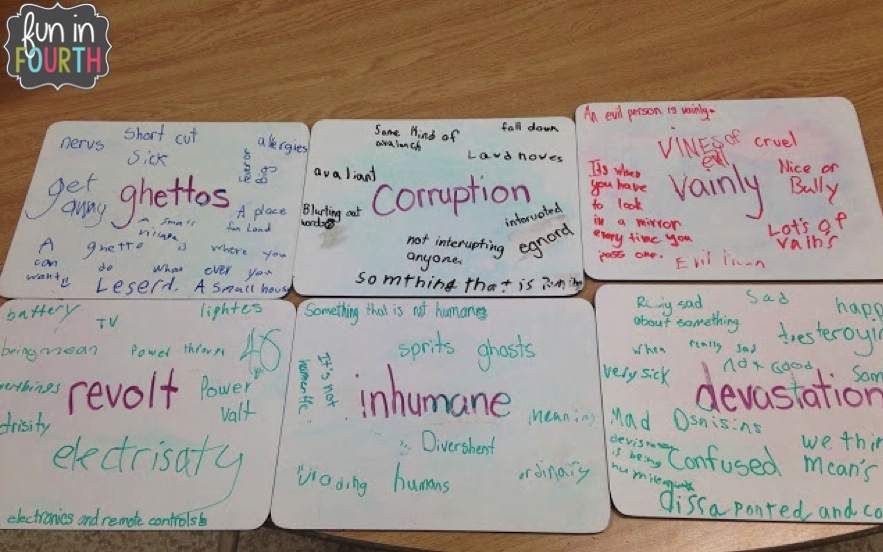 fun in
FOURTH
nervs
Short cut
Sick
alergies
get
ghettos
A place
fun Land
A small
A ghetto is where you
can do what ever you
want
Leserd.
A small hous
Same Kind of
avalanch
fall down
Lava moves
avaliant
Corruption
Blurting out
words
intoruoted
egnord
not interupting
anyone
Somthing that is
An evil person is vainly.
VINES of
evil
cruel
Its when
you have
to look
in a mirror
every time you
pass one.
Vainly
Nice or
Bully
Lot's of
vain's
Evil
battery
TV
lightes
being mean
Power thrown
revolt
Power
Valt
electrisaty
electronics and remote controls
Something that is not humane
sprits ghosts
It's not
inhumane
meaning
Divershent
humans
ordinairy
sad
about something
Sad
happ
when really sad
not good
very sick
Som
devastation
Mad
Osnisins
is being
Confused
we thin
mean's
dissaponted and co